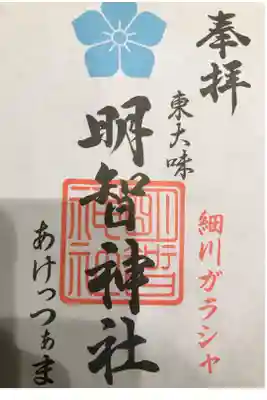 奉拝
東大味
明智神社
細川ガラシャ
あけっつぁま
明智神社